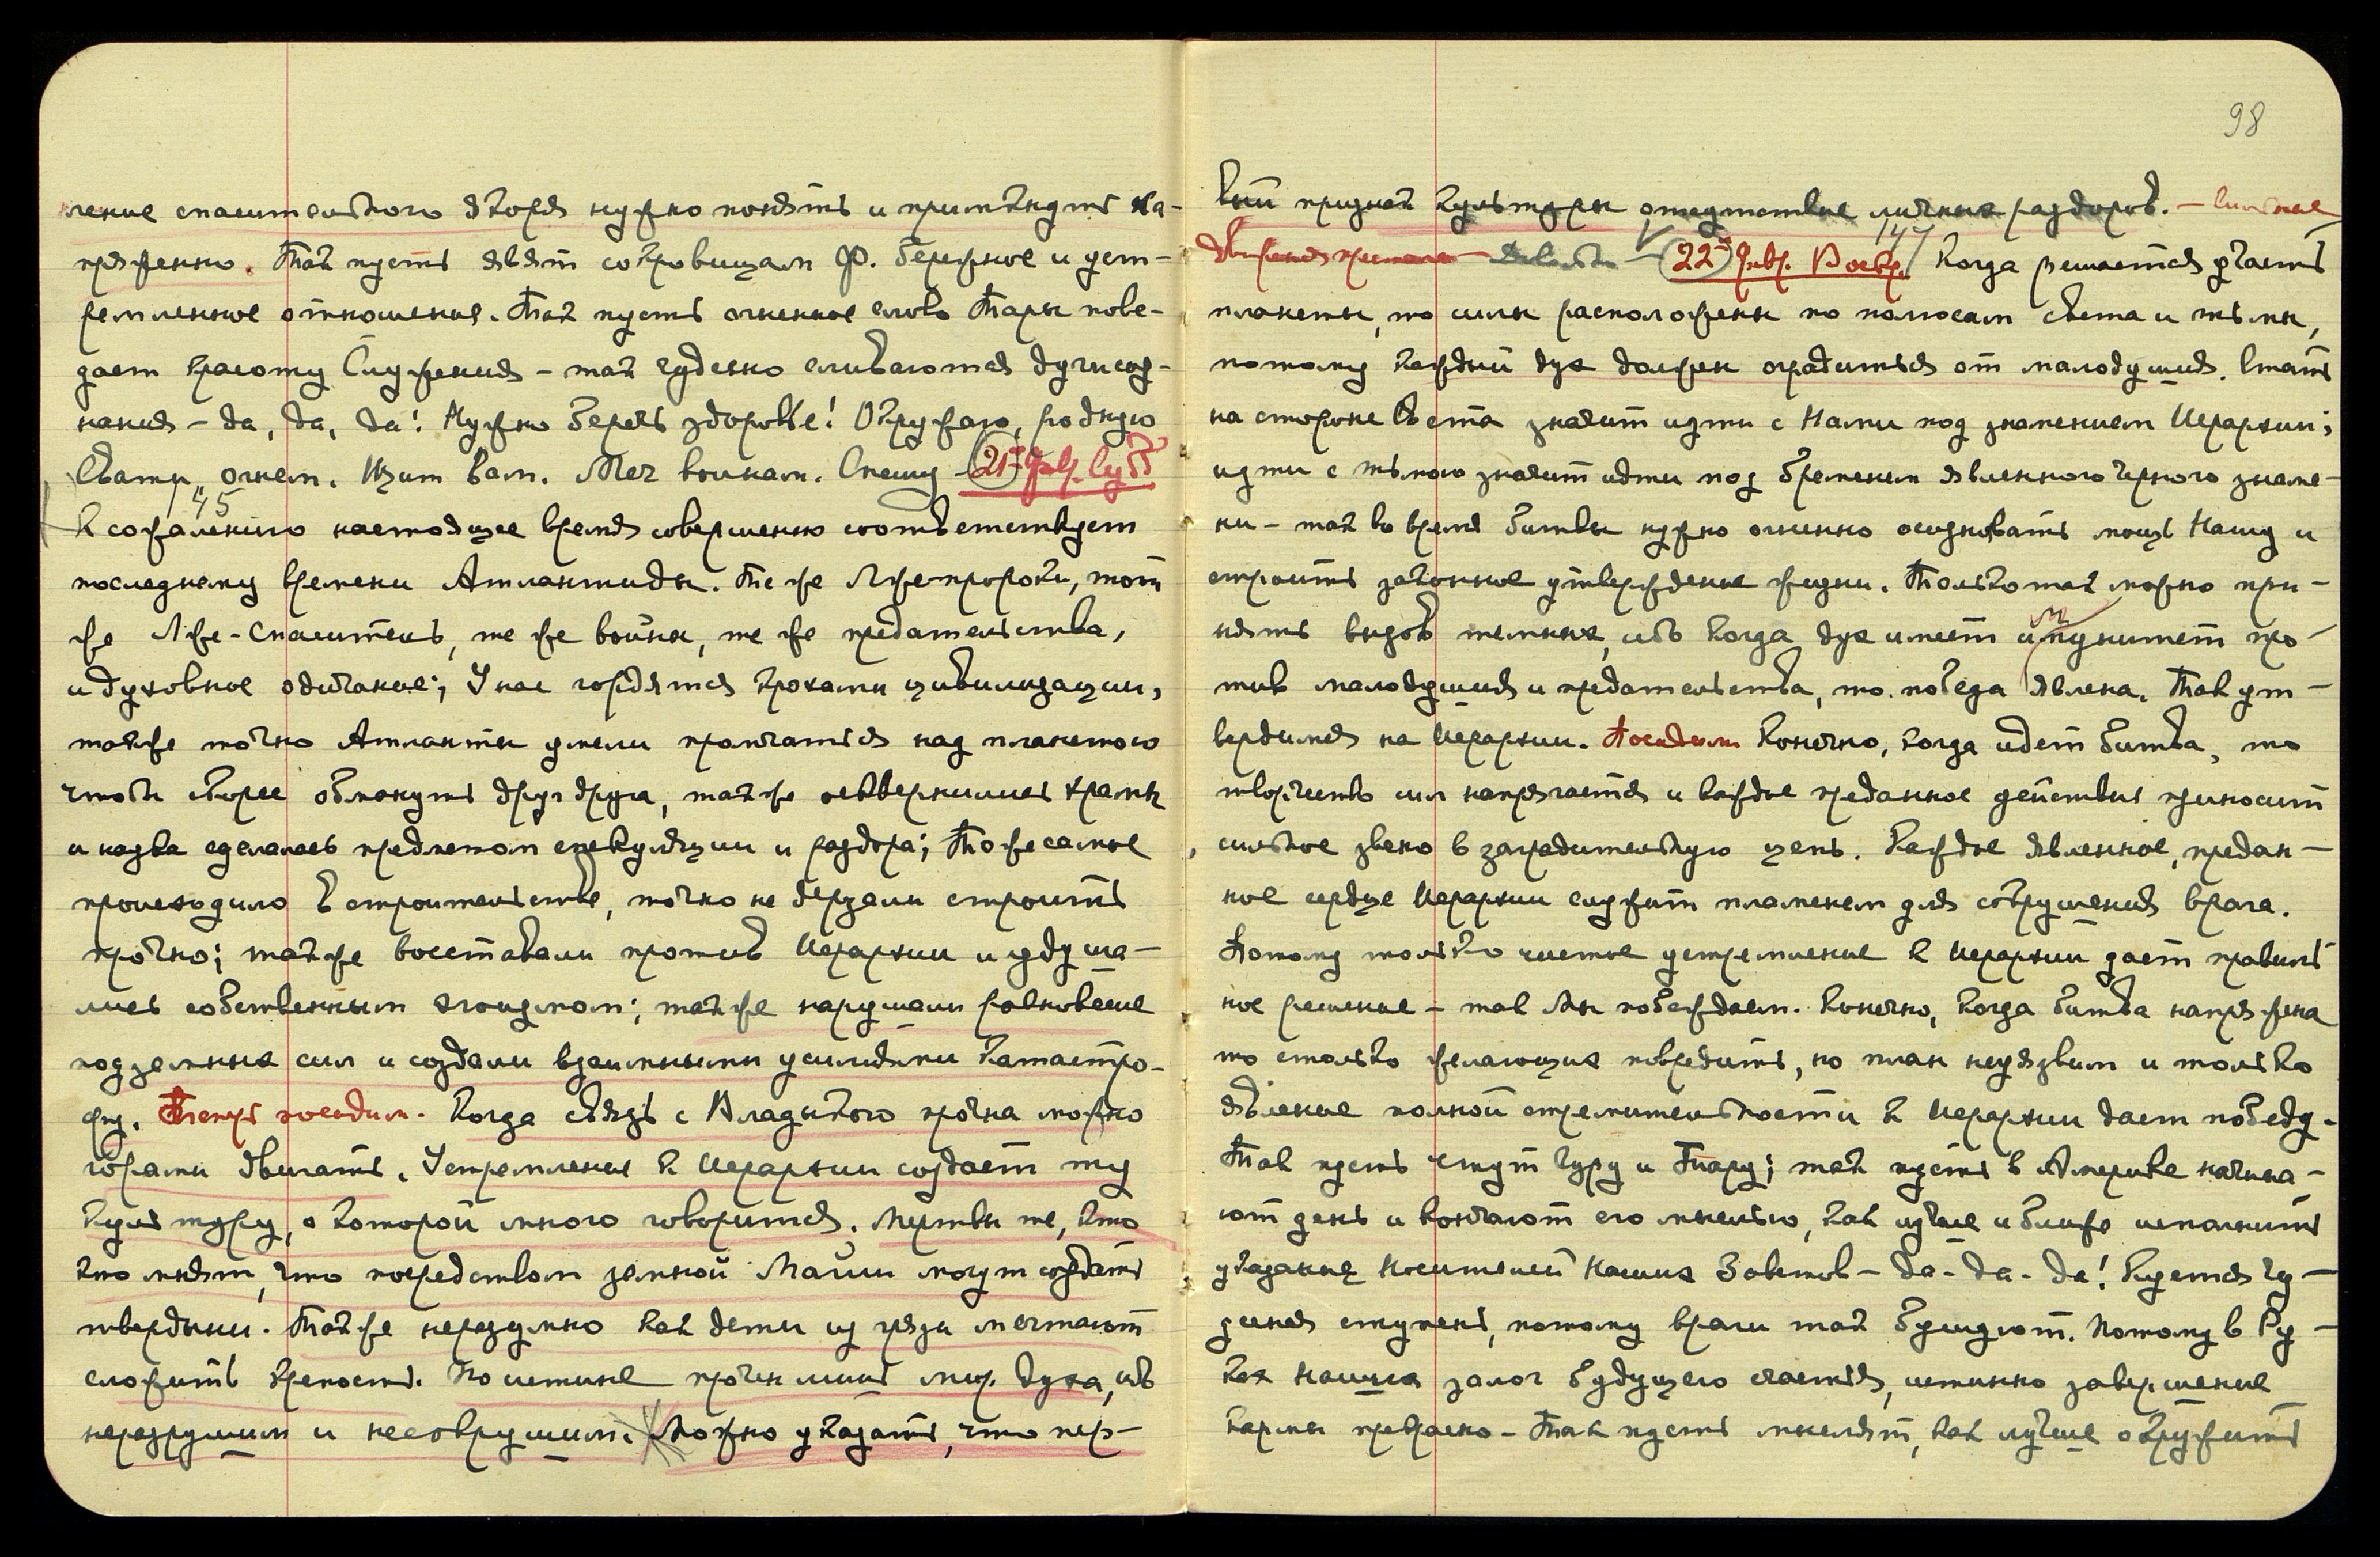 ление спасительного якоря нужно понять и примкнуть на-
пряженно. Так пусть явят сокровищам Ф. бережное и уст-
ремленное отношение. Так пусть огненное слово Тары пове-
дает красоту Служения – так чудесно сливаются лучи соз-
нания – да, да, да! Нужно беречь здоровье! Окружаю, родную
Свати, огнем. Щит вам. Меч воинам. Спешу – 21е Янв. Субб
45
К сожалению настоящее время совершенно соответствует
последнему времени Атлантиды. Те же Лжепророки, тот
же Лже-Спаситель, те же войны, те же предательства,
и духовное одичание; У нас гордятся крохами цивилизации,
также точно Атланты умели промчаться над планетою
чтобы скорее обмануть друг друга, также осквернились храмы
и наука сделалась предметом спекуляции и раздора; То же самое
происходило в строительстве, точно не дерзали строить
прочно; также восставали против Иерархии и удуша-
лись собственным эгоизмом; также нарушали равновесие
подземных сил и создали взаимными усилиями катастро-
фу. Теперь посидим. Когда связь с Владыкою прочна можно
горами двигать. Устремление к Иерархии создает ту
культуру, о которой много говорится. Мертвы те, кто
кто мнят, что посредством земной Майи могут создать
твердыни. Также неразумно как дети из грязи мечтают
сложить крепость. Поистине прочен лишь мир духа, ибо
неразрушим и несокрушим. Можно указать, что пер-
98
вый признак культуры отсутствие личных раздоров. – Сильное
22е Янв. Воскр. 147 Когда решается участь
планеты, то силы расположены по полюсам света и тьмы,
потому каждый дух должен оградиться от малодушия. Стать
на стороне Света значит идти с Нами под знаменем Иерархии;
идти с тьмою значит идти под бременем явленного черного знаме-
ни – так во время битвы нужно огненно осознавать мощь Нашу и
строить законное утверждение жизни. Только так можно при-
нять вызов темных, ибо когда дух имеет иммунитет про-
тив малодушия и предательства, то победа явлена. Так ут-
вердимся на Иерархии. Посидим Конечно, когда идет битва, то
творчество сил напрягается и каждое преданное действие приносит
сильное звено в заградительную цепь. Каждое явленное, предан-
ное сердце Иерархии служит пламенем для сокрушения врага.
Потому только чистое устремление к Иерархии дает правиль
ное решение – так Мы побеждаем. Конечно, когда битва напряжена
то столько желающих повредить, но план неуязвим и только
явление полной стремительности к Иерархии дает победу.
Так пусть чтут Гуру и Тару; так пусть в Америке начина-
ют день и кончают его мыслью, как лучше и ближе исполнить
указание Носителей Наших Заветов – да – да – да! Куется чу-
десная ступень, потому враги так бушуют. Потому в Ру-
ках Наших залог будущего счастья, истинно завершение
кармы прекрасно – Так пусть мыслят, как лучше окружить